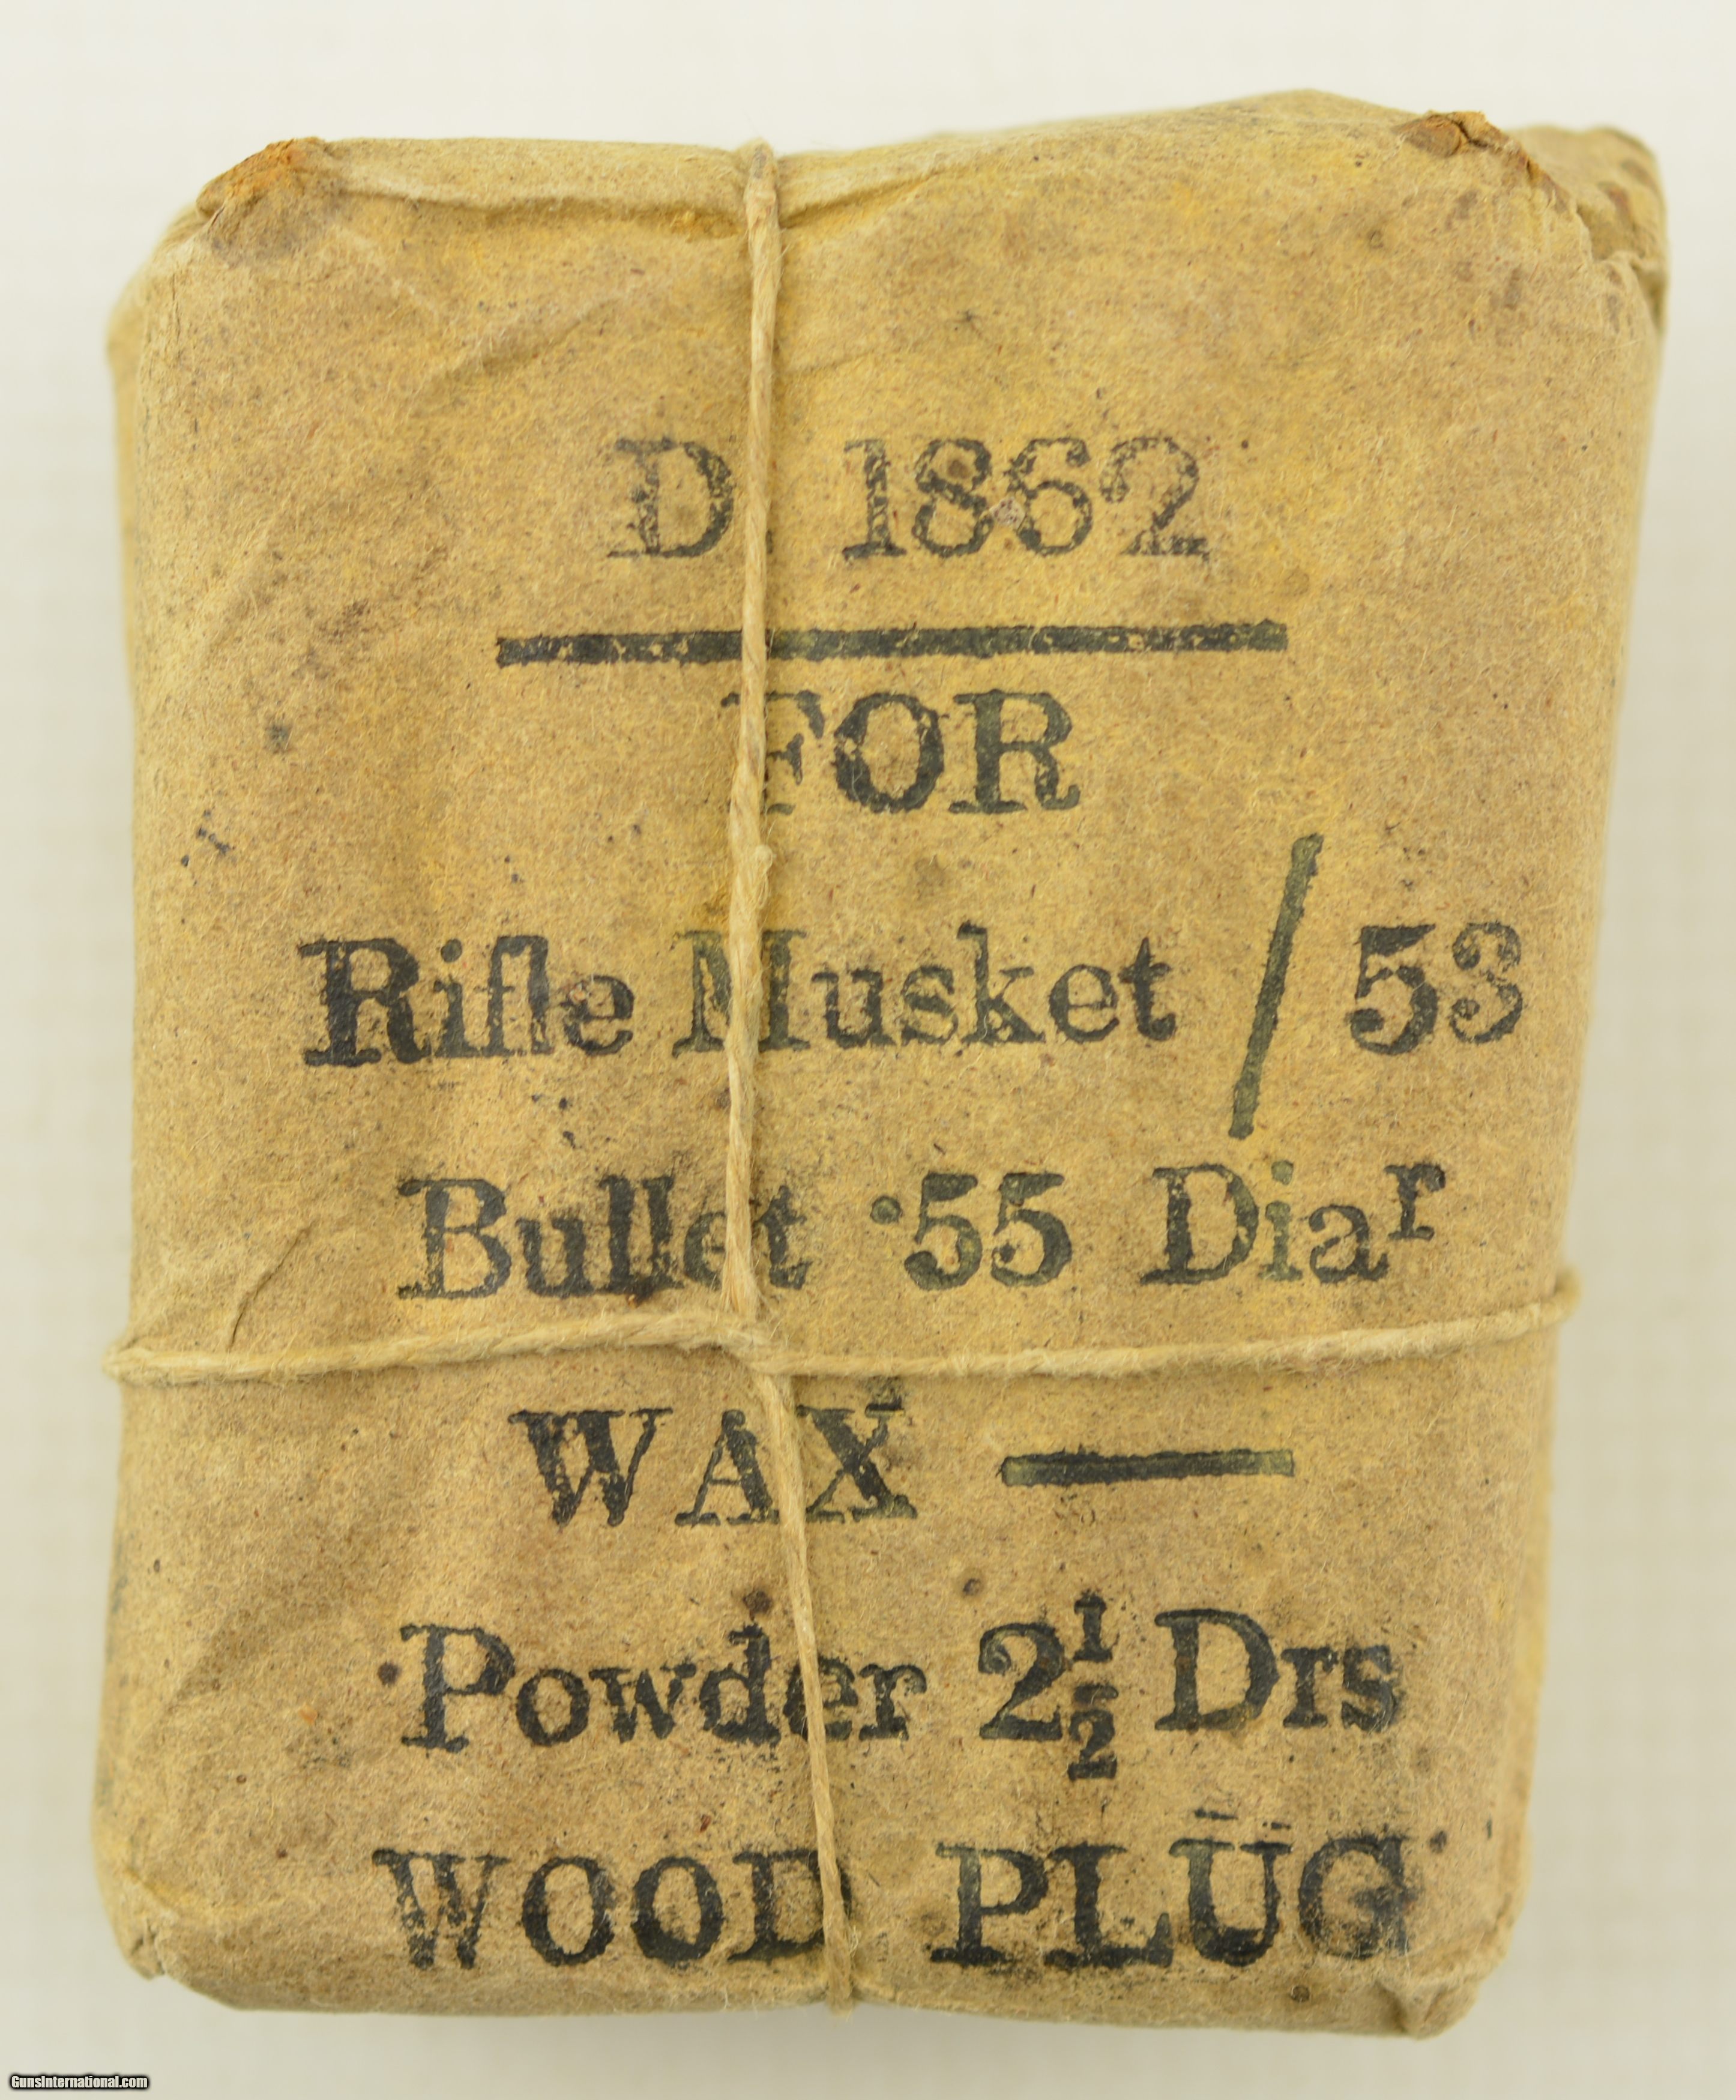 D. 1862
FOR
Rifle Musket / 53
Bullet ·55 Diaʳ
WAX —
Powder 2½ Drs
WOOD PLUG
GunsInternational.com